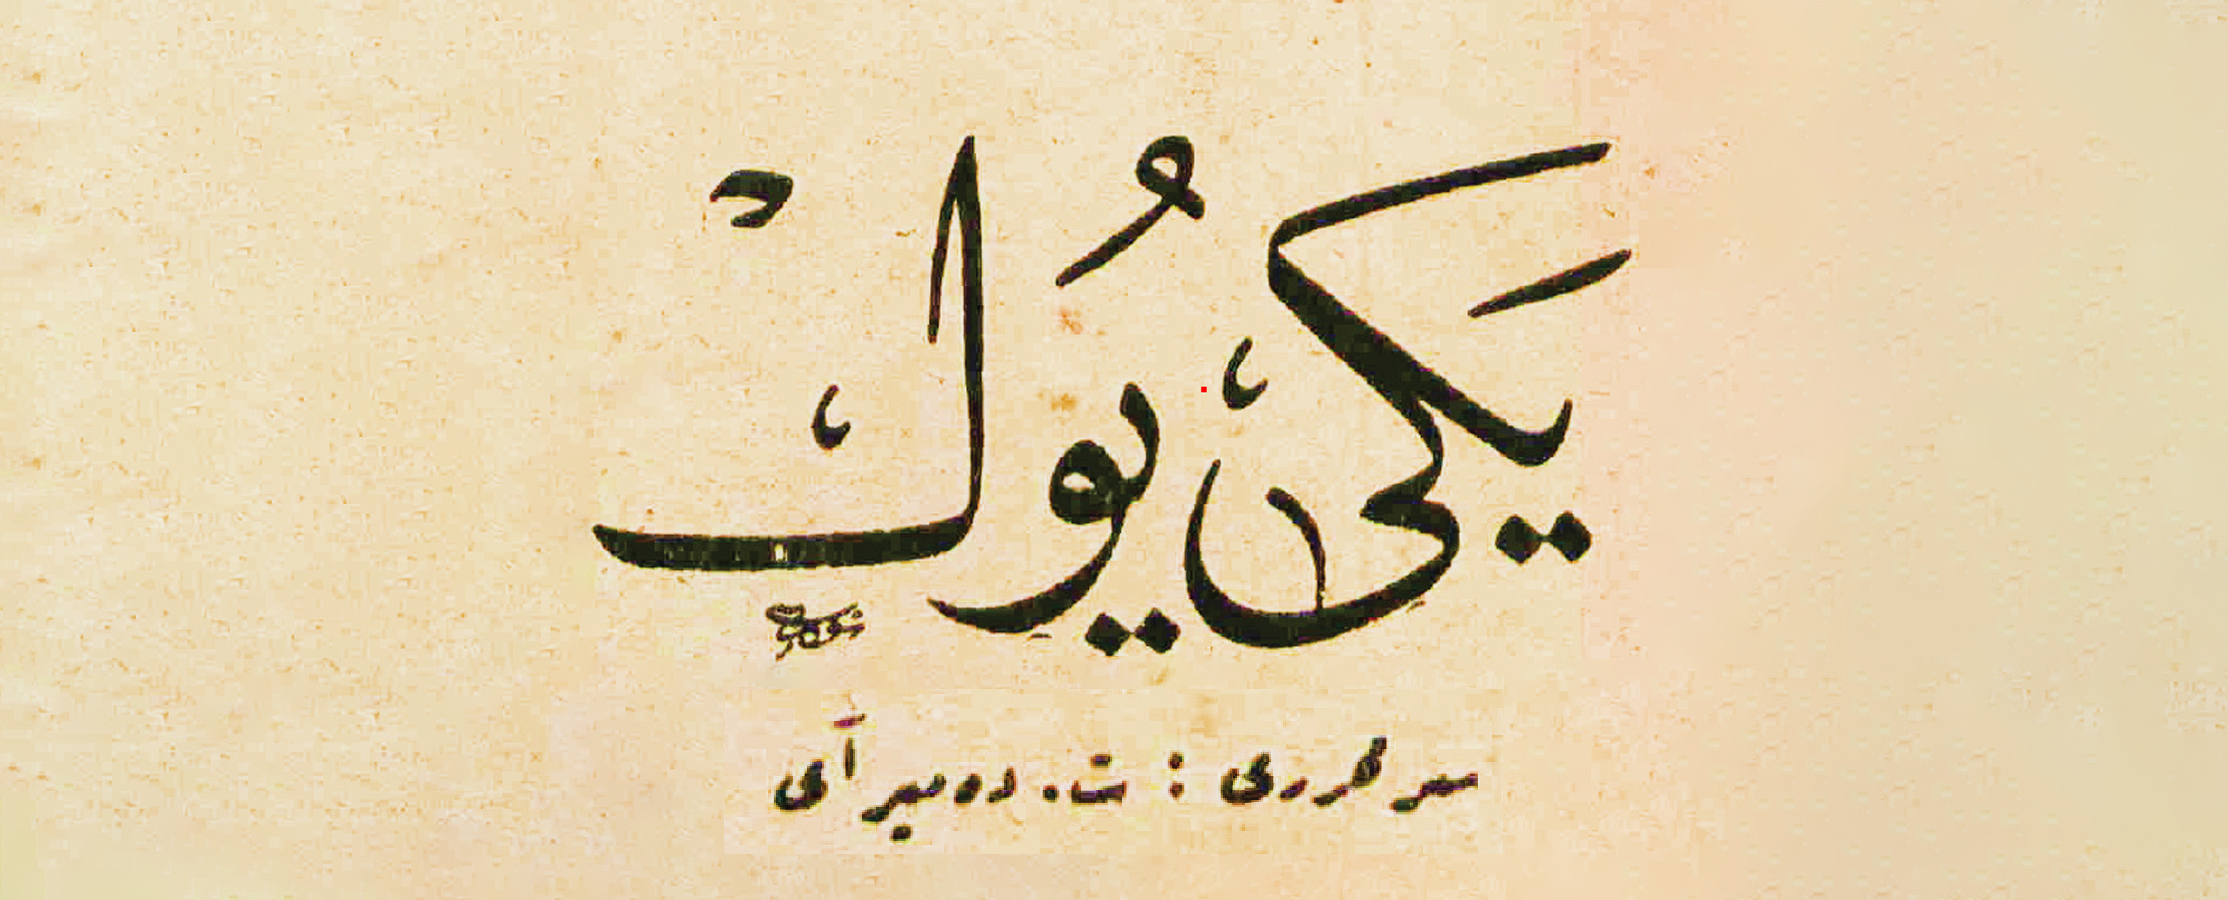 يَكى يُوكْ
سر محررى : ت. ده مير آى